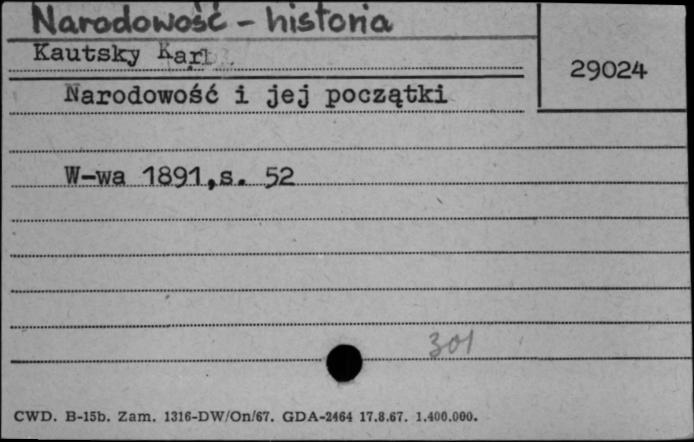 Narodowość - historia
Kautsky Karl
29024
Narodowość i jej początki
W-wa 1891,s. 52
301
CWD. B-15b. Zam. 1316-DW/On/67. GDA-2464 17.8.67. 1.400.000.